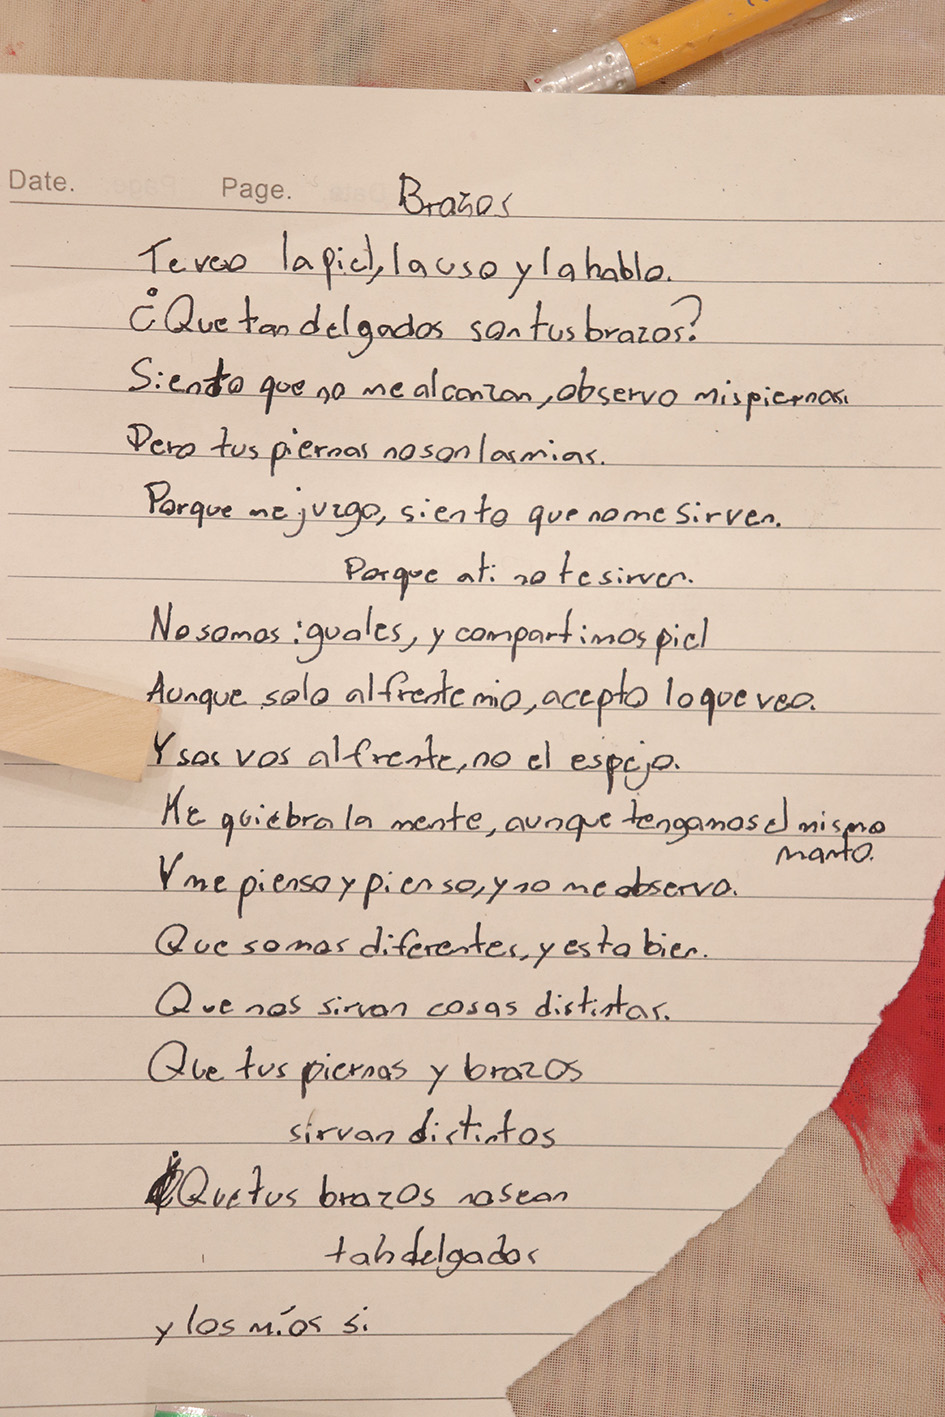 Date. Page. Brazos
Te veo la piel, la uso y la hablo.
¿Que tan delgados son tus brazos?
Siento que no me alcanzan, observo mis piernas.
Pero tus piernas no son las mias.
Porque me juzgo, siento que no me sirven.
Porque a ti no te sirven.
No somos iguales, y compartimos piel
Aunque solo al frente mio, acepto lo que veo.
Y sos vos al frente, no el espejo.
Me quiebra la mente, aunque tengamos el mismo
manto.
Y me pienso y pienso, y no me observo.
Que somos diferentes, y esta bien.
Que nos sirvan cosas distintas.
Que tus piernas y brazos
sirvan distintos
Que tus brazos no sean
tan delgados
y los míos si